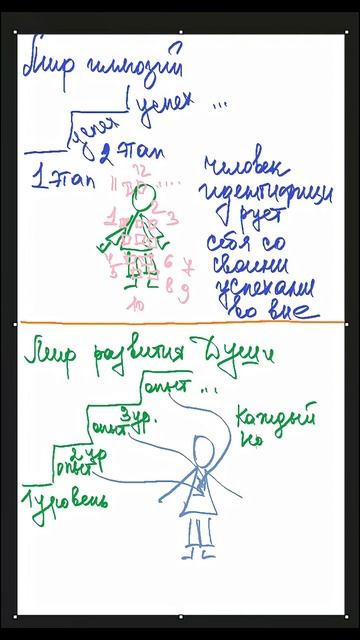 Мир иллюзий
успех ...
успех
2 Этап
1 Этап
человек
идентифици
рует
себя со
своими
успехами
во вне
12
11 ....
1 2 3
4 6 7
5 8 9
10
Мир развития Души
опыт ...
3 ур.
опыт
2 ур
опыт
1 уровень
Каждый
ко